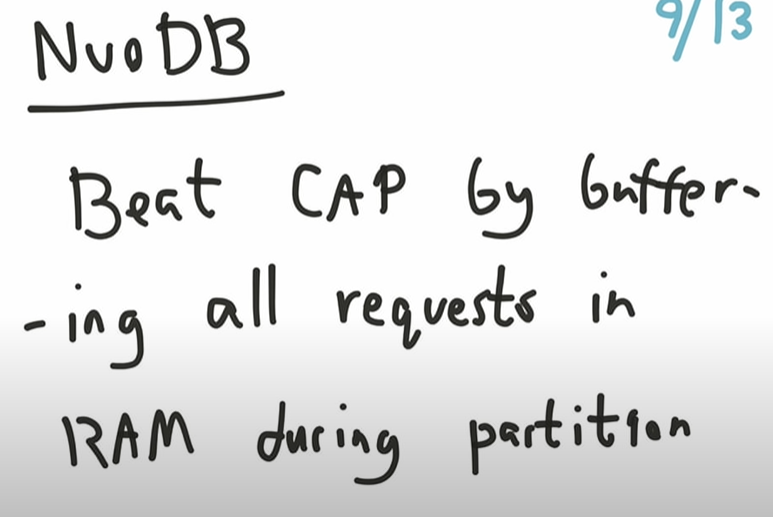 NuoDB
9/13
Beat CAP by buffer-
-ing all requests in
RAM during partition